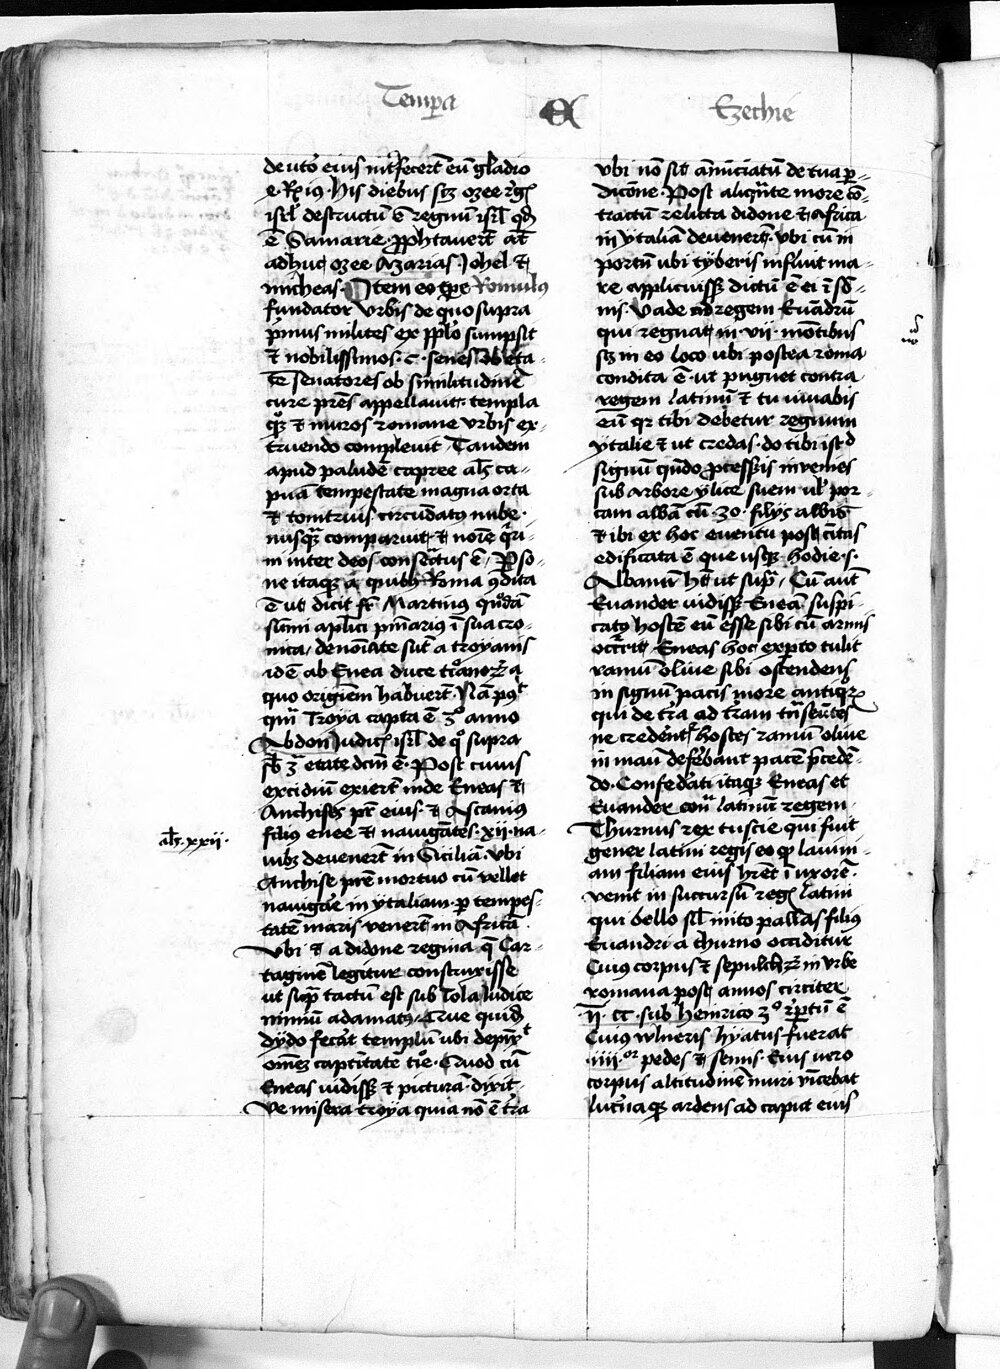 Tempa
Ezechie
de utō eius int̄fecerēt eū gladio
e. Rx̄ius. His diebus sɔ ozee r̄gꝭ
isrl̄ destructū ē regnū isrl̄ qđ
ē Samarie. pphtaverēt āt
adhuc ozee Azarias. Johel ⁊
micheas. Item eo tp̄e Romulus
fundator urbis de quo supra
p̄mus milites ex pplō sumpsit
⁊ nobilissimos .c. senes ob eta-
tē senatores ob similitudinē
cure p̄res appellavit. templa
qꝫ ⁊ muros romane urbis ex-
truendo complevit. Tandem
apud paludē capree al̄s ca-
puā tempestate magna orta
⁊ tonitruis circūdatꝰ nube.
nusqꝫ comparuit. ⁊ noīe q̄ri-
ni inter deos consecātus ē. Pso-
ne itaqꝫ a quibꝫ Roma ꝯdita
ē ut dicit fr̄ Martinus qn̄dā
sūmi aplīci pn̄iarius ī sua cro-
nica. denoīate sūt a troyanis
idē ab Enea duce troianoꝝ a
quo originem habuerēt. Nā pꝰt
qm̄ Troya capta ē 3º anno
Abdon judicꝭ isrl̄ de qº supra
sb̄ 3ª etate dc̄m ē. Post cuius
excidiū exierēt inde Eneas ⁊
Anchises p̄r eius. ⁊ Ascanius
al̄s .xxii.
filius enee ⁊ navigātes .xii. na-
vibꝫ devenerēt in Siciliā. ubi
Anchise p̄re mortuo cū vellet
navigāe in ytaliam. p tempes-
tatē maris venerēt in Africā.
Ubi ⁊ a didone regina q̄ Car-
taginē legitur construxisse
ut sup̄ tactū est sub Tola iudice
nimiū adamatꝰ. Que quidē
dydo fecāt templū ubi depinx̄t
om̄ez captītatē tro͞e. Quod cū
Eneas vidissꝫ ⁊ picturā. dixit.
Ve misera troya quia nō ē t̄ra
ubi nō sit annūciatū de tua p-
dicōne. Post aliqn̄te more cō-
tractū relicta didone ⁊ Africa
in ytaliā devenerēt. ubi cū in
portū ubi tyberis influit ma-
re applicuissꝫ dictū ē ei ī sō-
nis. Vade ad regem Evādrū
qui regnat in .vii. mōtibus
sꝫ in eo loco ubi postea roma
condita ē. ut pugnet contra
regem latinū ⁊ tu iuvabis
eū qr̄ tibi debetur regnum
ytalie ⁊ ut credas. do tibi istđ
signū qn̄do ꝓcesseris invenies
sub arbore ylice suem vl̄ por-
cam albā cū .30. filijs albis
⁊ ibi ex hoc eventu post cītas
edificata ē que usqꝫ hodie .s.
Albanū hēt ut supᵃ. Cū aūt
Evander vidissꝫ Eneā suspi-
catꝰ hostē eū esse sibi cū armis
occ̄rit. Eneas hoc expto tulit
ramū olive sibi ostendens
in signū pacis more antiqꝝ
qui de t̄ra ad t̄ram tn̄seūtes
ne credent̄ hostes ramū olive
in manu defēbant pacē p̄ceden-
do. Confedāti itaqꝫ Eneas et
Evander con̄ latinū regem.
Thurnus rex tuscie qui fuit
gener latini regis eo qp lavini-
am filiam eius hr̄et ī uxorē.
venit in succursū regꝭ latini
qui bello sil̄ inito pallas filius
Evandri a thurno occiditur
Cuius corpus ⁊ sepulchꝝ in urbe
romana post annos circiter
.ii. cc. sub henrico 3º r̄pertū ē
Cuius vulneris hyatus fuerat
.iiii.ᵒʳ pedes ⁊ semis. Eius vero
corpus altitudinē muri vincebat
luc̄naqꝫ ardens ad caput eius